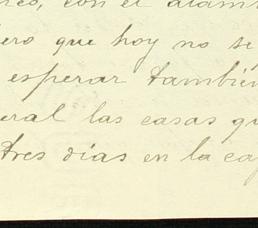 con el alam
ero que hoy no se
esperar también
eral las casas qu
tres días en la ca